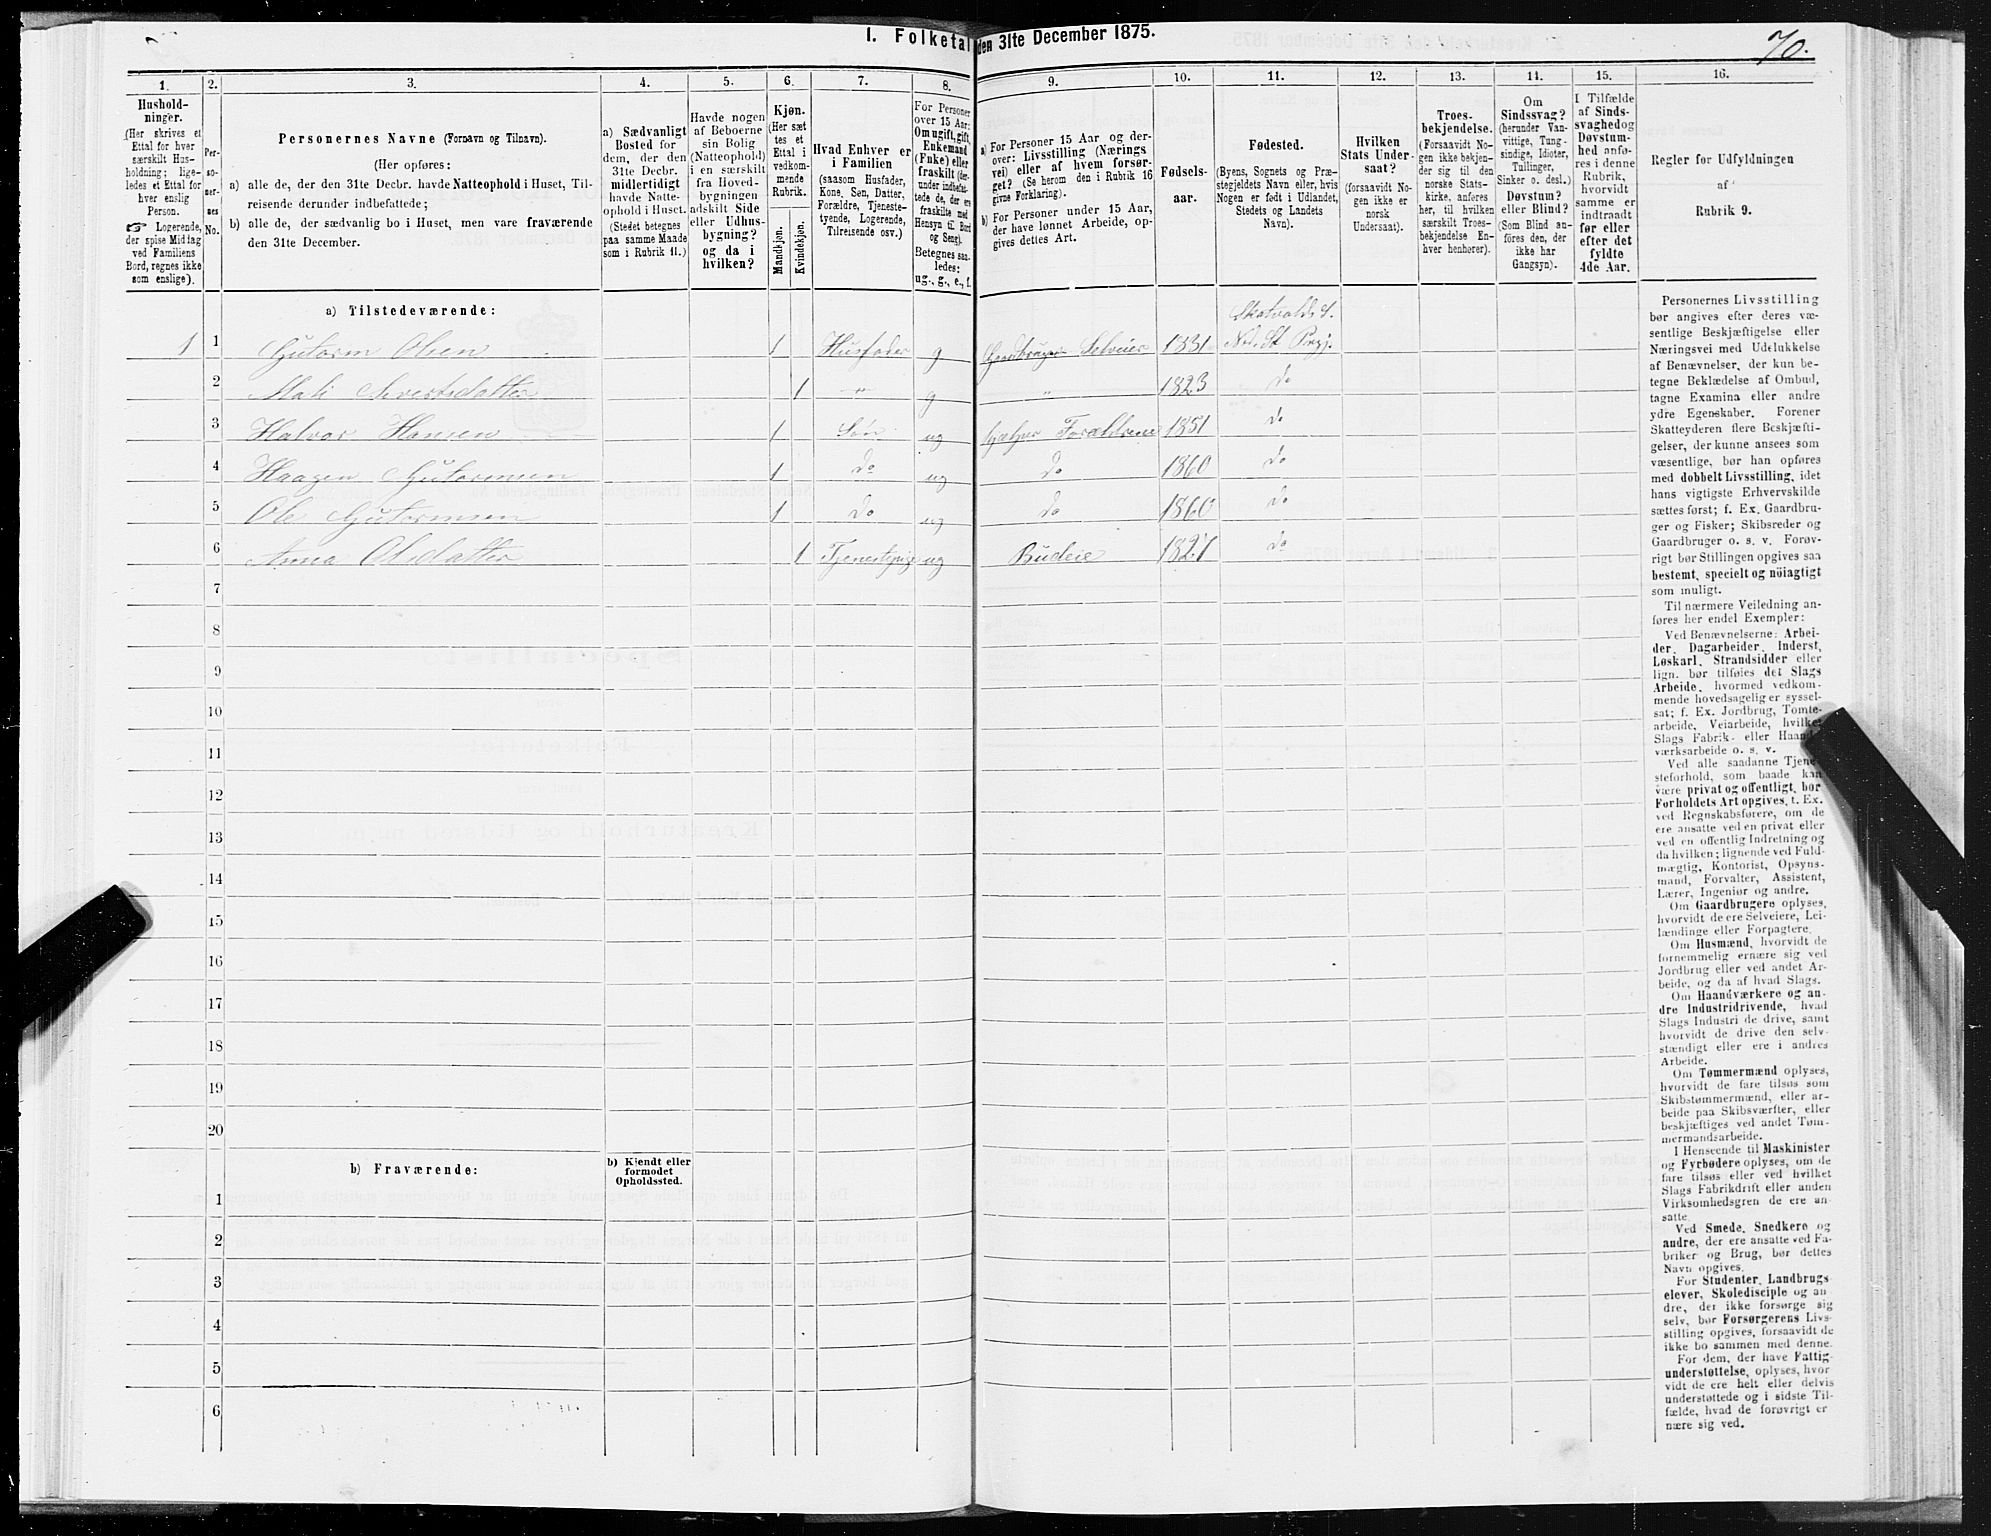 I. Folketal den 31te December 1875.
70.
1. 2. 3. 4. 5. 6. 7. 8. 9. 10. 11. 12. 13. 14. 15. 16.
Hushold-
ninger.
(Her skrives et
Ettal for hver
særskilt Hus-
holdning; lige-
ledes et Ettal for
hver enslig
Person.
☞ Logerende,
der spise Middag
ved Familiens
Bord, regnes ikke
som enslige).
Per-
so-
ner-
nes
No.
Personernes Navne (Fornavn og Tilnavn).
(Her opføres:
a) alle de, der den 31te Decbr. havde Natteophold i Huset, Til-
reisende derunder indbefattede;
b) alle de, der sædvanlig bo i Huset, men vare fraværende
den 31te December.
a) Sædvanligt
Bosted for
dem, der den
31te Decbr.
midlertidigt
havde Natte-
ophold i Huset.
(Stedet betegnes
paa samme Maade
som i Rubrik 11.)
Havde nogen
af Beboerne
sin Bolig
(Natteophold)
i en særskilt
fra Hoved-
bygningen
adskilt Side
eller Udhus-
bygning?
og da i
hvilken?
Kjøn.
(Her sæt
tes et
Ettal i
vedkom-
mende
Rubrik.
Mandkjøn.
Kvindekjøn.
Hvad Enhver er
i Familien
(saasom Husfader,
Kone, Søn, Datter,
Forældre, Tjeneste-
tyende, Logerende,
Tilreisende osv.)
For Personer
over 15 Aar:
Om ugift, gift,
Enkemand
(Enke) eller
fraskilt (der-
under indbefat-
tede de, der ere
fraskilte med
Hensyn til Bord
og Seng).
Betegnes saa-
ledes:
ug., g., e., f.
a) For Personer 15 Aar og der-
over: Livsstilling (Nærings
vei) eller af hvem forsør-
get? (Se herom den i Rubrik 16
givne Forklaring).
b) For Personer under 15 Aar,
der have lønnet Arbeide, op-
gives dettes Art.
Fødsels-
aar.
Fødested.
(Byens, Sognets og Præ-
stegjeldets Navn eller, hvis
Nogen er født i Udlandet,
Stedets og Landets
Navn).
Hvilken
Stats Under-
saat?
(forsaavidt No-
gen ikke er
norsk
Undersaat).
Troes-
bekjendelse.
(Forsaavidt No-
gen ikke bekjen-
der sig til den
norske Stats-
kirke, anføres
her, til hvilken
særskilt Troes-
bekjendelse En-
hver henhører).
Om
Sindssvag?
(herunder Van-
vittige, Tung-
sindige, Idioter,
Tullinger,
Sinker o. desl.)
Døvstum?
eller Blind?
(Som Blind an-
føres den, der
ikke har
Gangsyn).
I Tilfælde
af Sinds-
svaghed og
Døvstum-
hed anfø-
res i denne
Rubrik,
hvorvidt
samme er
indtraadt
før eller
efter det
fyldte
4de Aar.
Regler før Udfyldningen
af
Rubrik 9.
a) Tilstedeværende:
Skatvolds S.
1 1 Gutorm Olsen 1 Husfader g Gaardbruger Selveier 1831 Ned. St Prgj.
2 Mali Sivertsdatter 1 " g " 1823 do
3 Halvor Hansen 1 Søn ug hjælper Forældrene 1851 do
4 Haagen Gutormsen 1 do ug do 1860 do
5 Ole Gutormsen 1 do ug do 1860 do
6 Anna Olsdatter 1 Tjenestepige ug Budeie 1827 do
7
8
9
10
11
12
13
14
15
16
17
18
19
20
b) Fraværende:
b) Kjendt eller
formodet
Opholdssted.
1
2
3
4
5
6
Personernes Livsstilling
bør angives efter deres væ-
sentlige Beskjæftigelse eller
Næringsvei med Udelukkelse
af Benævnelser, der kun be-
tegne Beklædelse af Ombud,
tagne Examina eller andre
ydre Egenskaber. Forener
Skatteyderen flere Beskjæfti-
gelser, der kunne ansees som
væsentlige, bør han opføres
med dobbelt Livsstilling, idet
hans vigtigste Erhvervskilde
sættes først; f. Ex. Gaardbru-
ger og Fisker; Skibsreder og
Gaardbruger o. s. v. Forøv-
rigt bør Stillingen opgives saa
bestemt, specielt og nöiagtigt
som muligt.
Til nærmere Veiledning an-
føres her endel Exempler:
Ved Benævnelserne: Arbei-
der, Dagarbeider, Inderst,
Løskarl, Strandsidder eller
lign. bør tilføies det Slags
Arbeide, hvormed vedkom-
mende hovedsagelig er syssel-
sat; f. Ex. Jordbrug, Tomte-
arbeide, Veiarbeide, hvilket
Slags Fabrik- eller Haand-
værksarbeide o. s. v.
Ved alle saadanne Tjene-
steforhold, som baade kan
være privat og offentligt, bør
Forholdets Art opgives, t. Ex.
ved Regnskabsførere, om de
ere ansatte ved en privat eller
ved en offentlig Indretning og
da hvilken; lignende ved Fuld-
mægtig, Kontorist, Opsyns-
mand, Forvalter, Assistent,
Lærer, Ingeniør og andre.
Om Gaardbrugere oplyses,
hvorvidt de ere Selveiere, Lei-
lændinge eller Forpagtere.
Om Husmænd, hvorvidt de
fornemmelig ernære sig ved
Jordbrug eller ved andet Ar-
beide, og da af hvad Slags.
Om Haandværkere og an-
dre Industridrivende, hvad
Slags Industri de drive, samt
hvorvidt de drive den selv-
stændigt eller ere i andres
Arbeide.
Om Tømmermænd oplyses,
hvorvidt de fare tilsøs som
Skibstømmermænd, eller ar-
beide paa Skibsværfter, eller
beskjæftiges ved andet Tøm-
mermandsarbeide.
I Henseende til Maskinister
og Fyrbødere oplyses, om de
fare tilsøs eller ved hvilket
Slags Fabrikdrift eller anden
Virksomhedsgren de ere an-
satte.
Ved Smede, Snedkere og
andre, der ere ansatte ved Fa-
briker og Brug, bør dettes
Navn opgives.
For Studenter, Landbrugs-
elever, Skoledisciple og an-
dre, der ikke forsørge sig
selv, bør Forsørgerens Livs-
stilling opgives, forsaavidt de
ikke bo sammen med denne.
For dem, der have Fattig-
understøttelse, oplyses, hvor-
vidt de ere helt eller delvis
understøttede og i sidste Til-
fælde, hvad de forøvrigt er
nære sig ved.